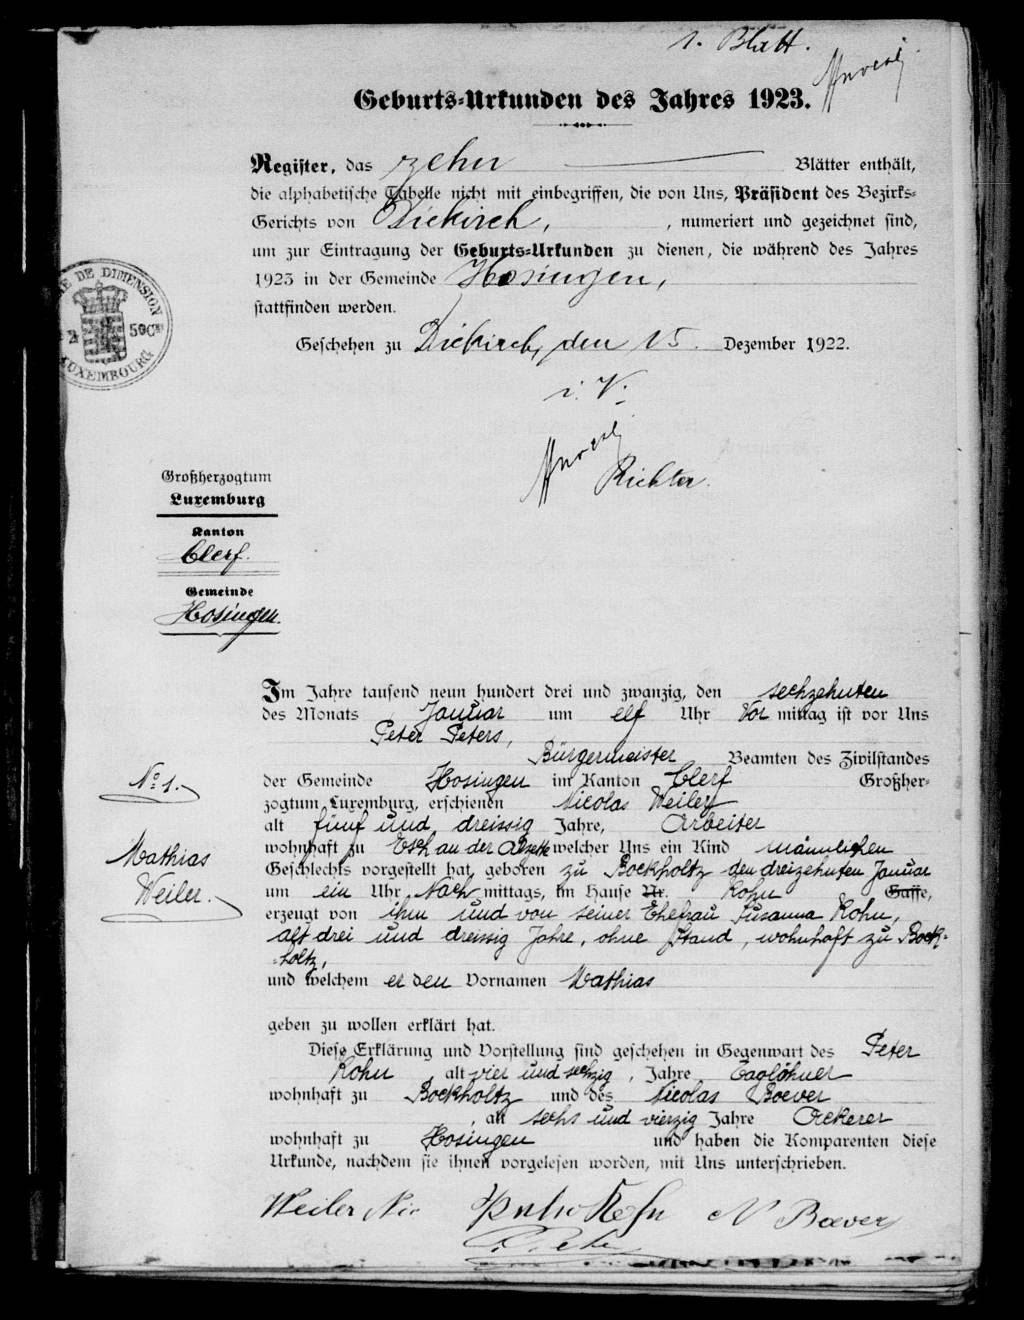 1. Blatt.
Geburts-Urkunden des Jahres 1923.
Register, das zehn Blätter enthält,
die alphabetische Tabelle nicht mit einbegriffen, die von Uns, Präsident des Bezirks-
Gerichts von Diekirch, , numeriert und gezeichnet sind,
um zur Eintragung der Geburts-Urkunden zu dienen, die während des Jahres
1923 in der Gemeinde Hosingen,
stattfinden werden.
Geschehen zu Diekirch, den 15. Dezember 1922.
i. V.
Richter.
DE DIMENSION
2 50Cs
LUXEMBOURG
Großherzogtum
Luxemburg
Kanton
Clerf.
Gemeinde
Hosingen.
Im Jahre tausend neun hundert drei und zwanzig, den sechzehnten
des Monats Januar um elf Uhr Vor mittag ist vor Uns
Peter Peters,
Bürgermeister Beamten des Zivilstandes
der Gemeinde Hosingen im Kanton Clerf Großher-
zogtum Luxemburg, erschienen Nicolas Weiler
alt fünf und dreissig Jahre, Arbeiter
wohnhaft zu Esch an der Alzette welcher Uns ein Kind männlichen
Geschlechts vorgestellt hat, geboren zu Bockholtz den dreizehnten Januar
um ein Uhr Nach mittags, im Hause Nr. Kohn Gasse,
erzeugt von ihm und von seiner Ehefrau Susanna Kohn,
alt drei und dreissig Jahre, ohne Stand, wohnhaft zu Bock-
-holtz,
und welchem er den Vornamen Mathias
geben zu wollen erklärt hat.
Diese Erklärung und Vorstellung sind geschehen in Gegenwart des Peter
Kohn alt vier und sechzig, Jahre Taglöhner
wohnhaft zu Bockholtz und des Nicolas Boever
, alt sechs und vierzig Jahre Ackerer
wohnhaft zu Hosingen und haben die Komparenten diese
Urkunde, nachdem sie ihnen vorgelesen worden, mit Uns unterschrieben.
No 1.
Mathias
Weiler.
Weiler Nic N Boever